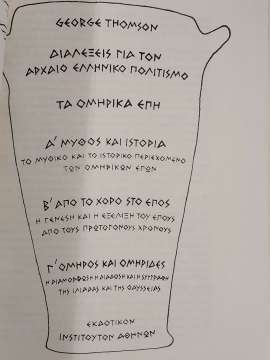 GEORGE THOMSON
ΔΙΑΛΕΞΕΙΣ ΓΙΑ ΤΟΝ
ΑΡΧΑΙΟ ΕΛΛΗΝΙΚΟ ΠΟΛΙΤΙΣΜΟ
ΤΑ ΟΜΗΡΙΚΑ ΕΠΗ
Α΄ ΜΥΘΟΣ ΚΑΙ ΙΣΤΟΡΙΑ
ΤΟ ΜΥΘΙΚΟ ΚΑΙ ΤΟ ΙΣΤΟΡΙΚΟ ΠΕΡΙΕΧΟΜΕΝΟ
ΤΩΝ ΟΜΗΡΙΚΩΝ ΕΠΩΝ
Β΄ ΑΠΟ ΤΟ ΧΟΡΟ ΣΤΟ ΕΠΟΣ
Η ΓΕΝΕΣΗ ΚΑΙ Η ΕΞΕΛΙΞΗ ΤΟΥ ΕΠΟΥΣ
ΑΠΟ ΤΟΥΣ ΠΡΩΤΟΓΟΝΟΥΣ ΧΡΟΝΟΥΣ
Γ΄ ΟΜΗΡΟΣ ΚΑΙ ΟΜΗΡΙΔΕΣ
Η ΔΙΑΜΟΡΦΩΣΗ Η ΔΙΑΔΟΣΗ ΚΑΙ Η ΣΥΓΓΡΑΦΗ
ΤΗΣ ΙΛΙΑΔΑΣ ΚΑΙ ΤΗΣ ΟΔΥΣΣΕΙΑΣ
ΕΚΔΟΤΙΚΟΝ
ΙΝΣΤΙΤΟΥΤΟΝ ΑΘΗΝΩΝ